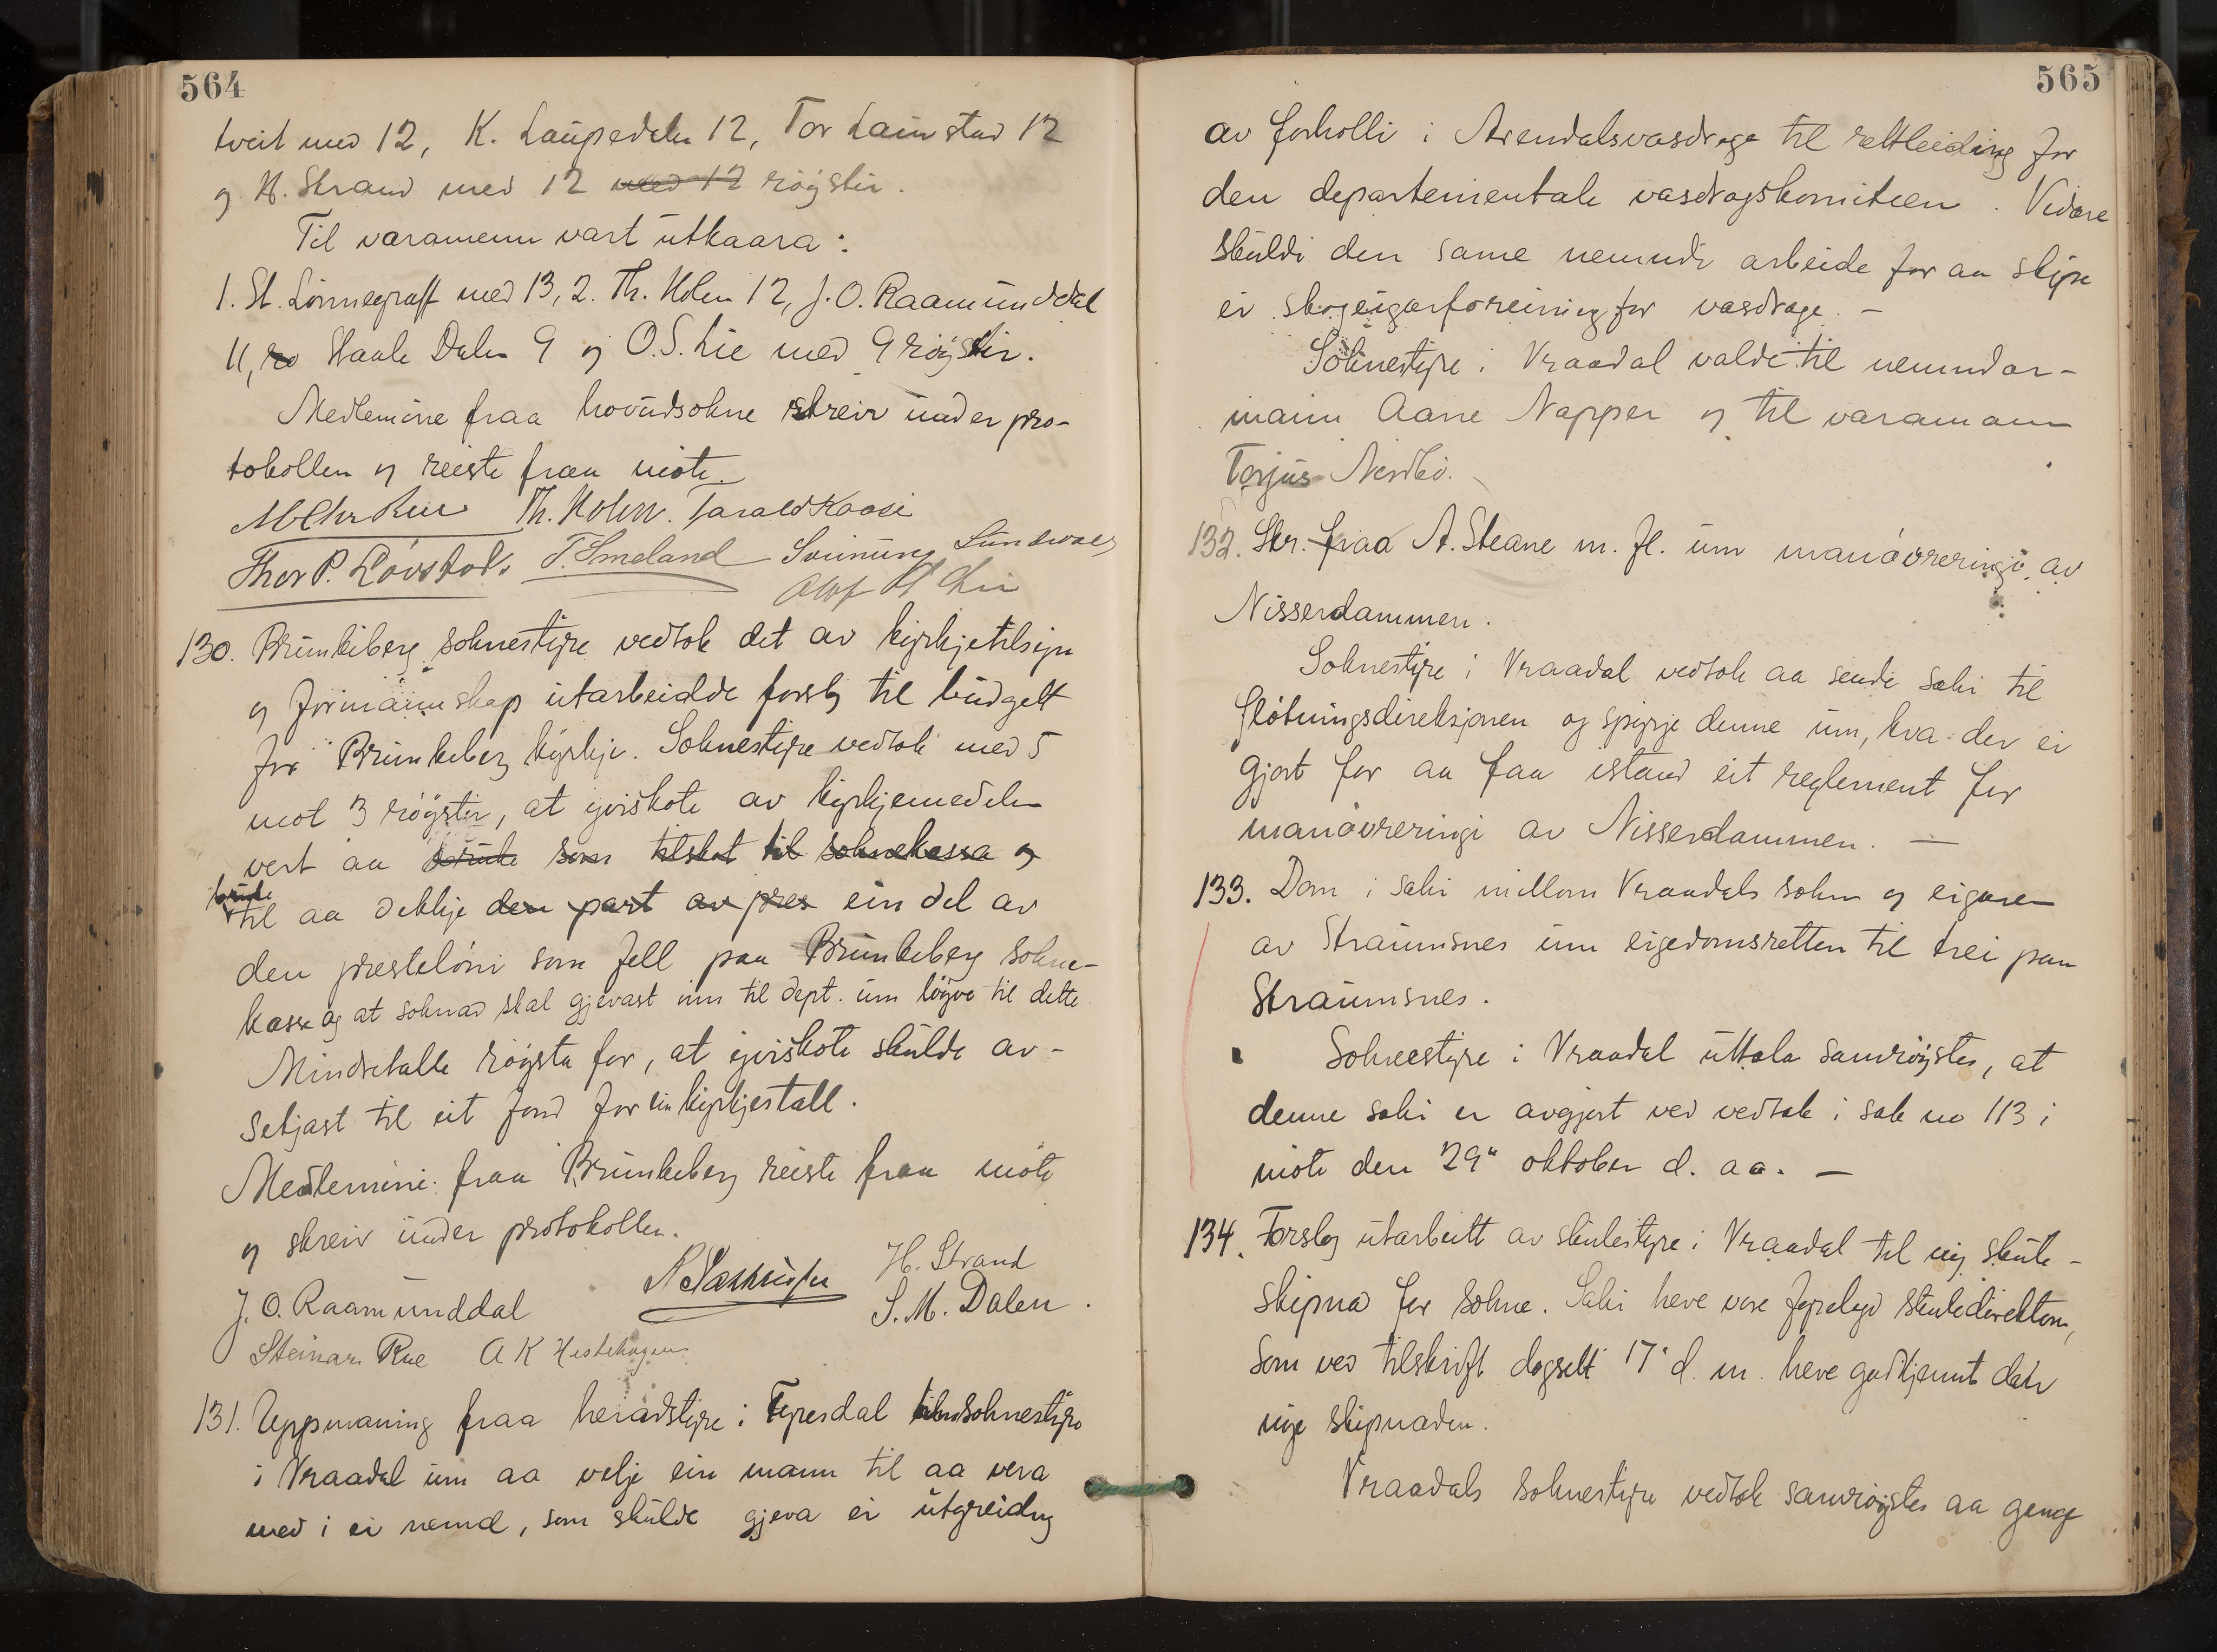 564
tveit med 12, K. Laupedalen 12, Tor Launstad 12
og H. Strand med 12 med 12 røyster.
Til varamenn vart utkaara:
1. St. Lønnegraff med 13, 2. Th. Holen 12, J. O. Raamunddal
11, Staale Dalen 9 og O. S. Lie med 9 røyster.
Medlemine fraa hovudsokne skreiv under pro-
tokollen og reiste fraa møte.
Th. Holen. Tarald Kaasi
Thor P. Lövstad. T. Smeland Sveinung Sundvaag
Olaf H Lie
130. Brunkeberg soknestyre vedtok det av kyrkjetilsyn
og formannskap utarbeidde forslag til budgett
for Brunkeberg kyrkje. Soknestyre vedtok med 5
mot 3 røyster, at yviskote av kyrkjemedelen
vert aa bruke som tilskot til soknekassa og
bruke
til aa dekkje den part av pres ein del av
den presteløni som fell paa Brunkeberg sokne-
kasse og at soknad skal gjevast inn til dept. um løyve til dette
Mindretalle røysta for, at yviskote skulde av-
setjast til eit fond for ein kyrkjestall.
Medlemine fraa Brunkeberg reiste fraa møte
og skreiv under protokollen.
H. Strand
J. O. Raamunddal S. M. Dalen.
Steinar Rue A K Hestehagen
131. Uppmaning fraa heradstyre i Fyresdal til soknestyre
i Vraadal um aa velje ein mann til aa vera
med i ei nemd, som skulde gjeva ei utgreiding
565
av forholli i Arendalsvasdrage til rettleiding for
den departementale vasdragskomiteen. Vidare
skuldi den same nemndi arbeide for aa skipe
ei skogeigarforeining for vasdrage. -
Soknestyre i Vraadal valde til nemndar-
mann Aane Napper og til varamann
Torjus Nordbø.
132. Skr. fraa A. Steane m. fl. um manøvreringi av
Nisserdammen.
Soknestyre i Vraadal vedtok aa sende saki til
fløtningsdireksjonen og spyrje denne um, kva der er
gjort for aa faa istand eit reglement for
manøvreringi av Nisserdammen. -
133. Dom i saki millom Vraadals sokn og eigaren
av Straumsnes um eigedomsretten til trei paa
Straumsnes.
Sokneestyre i Vraadal uttala samrøystes, at
denne saki er avgjort ved vedtak i sak no 113 i
møte den 29" oktober d. aa. -
134. Forslag utarbeitt av skulestyre i Vraadal til ny skule-
skipnad for sokne. Saki heve vore fyrelagd skuledirektøren,
som ved tilskrift dagsett 17' d. m. heve godkjennt den
nye skipnaden.
Vraadals soknestyre vedtok samrøystes aa gange